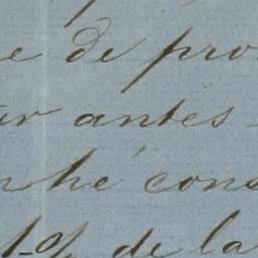 e de pro
ur antes
n hé cons
1-0% de la